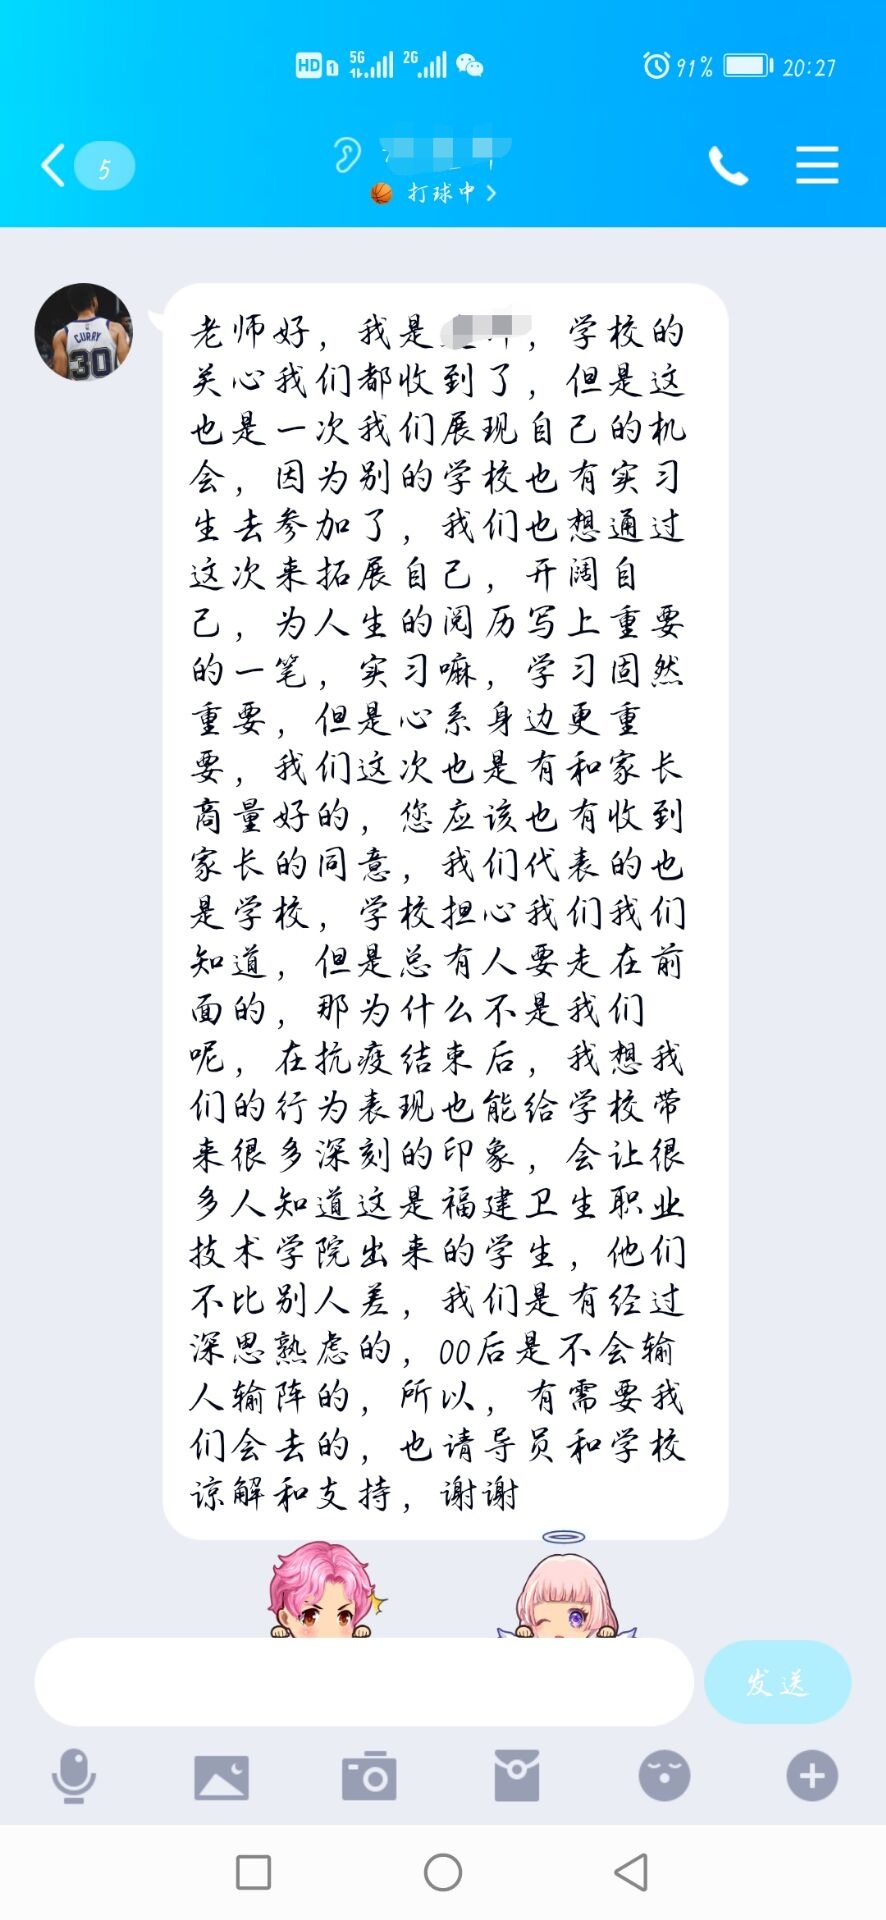 HD 1 5G 2G 91% 20:27
5
打球中
CURRY
30
老师好，我是，学校的
关心我们都收到了，但是这
也是一次我们展现自己的机
会，因为别的学校也有实习
生去参加了，我们也想通过
这次来拓展自己，开阔自
己，为人生的阅历写上重要
的一笔，实习嘛，学习固然
重要，但是心系身边更重
要，我们这次也是有和家长
商量好的，您应该也有收到
家长的同意，我们代表的也
是学校，学校担心我们我们
知道，但是总有人要走在前
面的，那为什么不是我们
呢，在抗疫结束后，我想我
们的行为表现也能给学校带
来很多深刻的印象，会让很
多人知道这是福建卫生职业
技术学院出来的学生，他们
不比别人差，我们是有经过
深思熟虑的，00后是不会输
人输阵的，所以，有需要我
们会去的，也请导员和学校
谅解和支持，谢谢
发送